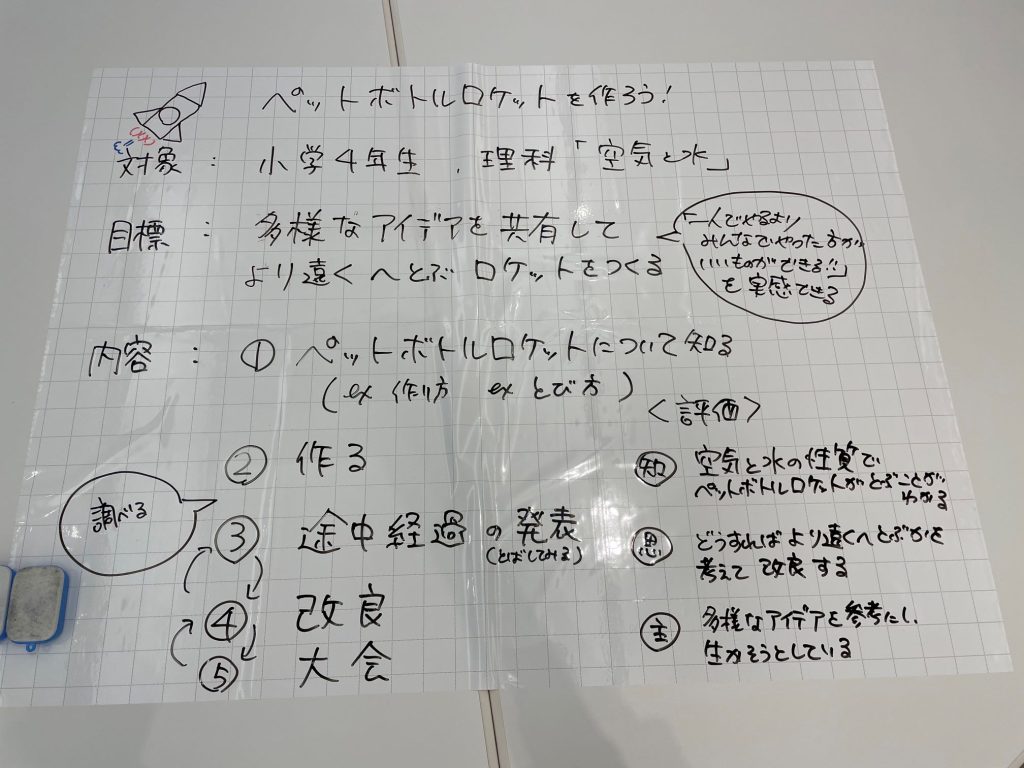 ペットボトルロケットを作ろう!
対象: 小学4年生、理科「空気と水」
目標: 多様なアイデアを共有して
より遠くへとぶロケットをつくる
「一人でやるより
みんなでやった方が
いいものができる!!」
を実感できる
内容: ① ペットボトルロケットについて知る
(ex 作り方 ex とび方)
② 作る
調べる
③ 途中経過の発表
(とばしてみる)
④ 改良
⑤ 大会
<評価>
知 空気と水の性質で
ペットボトルロケットがとぶことが
わかる
思 どうすればより遠くへとぶかを
考えて改良する
主 多様なアイデアを参考にし、
生かそうとしている